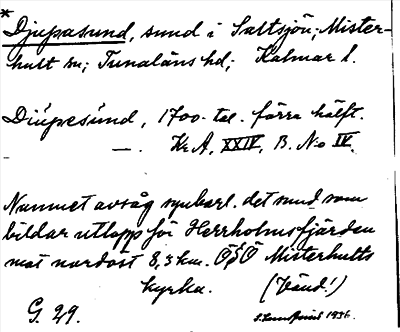 * Djupasund, sund i Saltsjön; Mister-
hult sn; Tunaläns hd; Kalmar l.
Diúpesúnd, 1700-tal. förra hälft.
—. Kr. A, XXIV, B. No IV.
Namnet avsåg synbarl. det sund som
bildar utlopp för Herrholmsfjärden
mot nordost 8,3 km. ÖSÖ Misterhults
kyrka. (Vänd!)
G. 29. 1936.